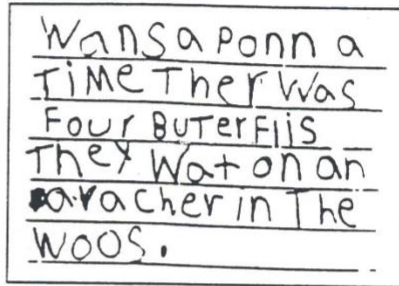 Wansaponn a
TiMe Ther Was
Four ButerFlis
They Wat on an
avacher in The
Woos.